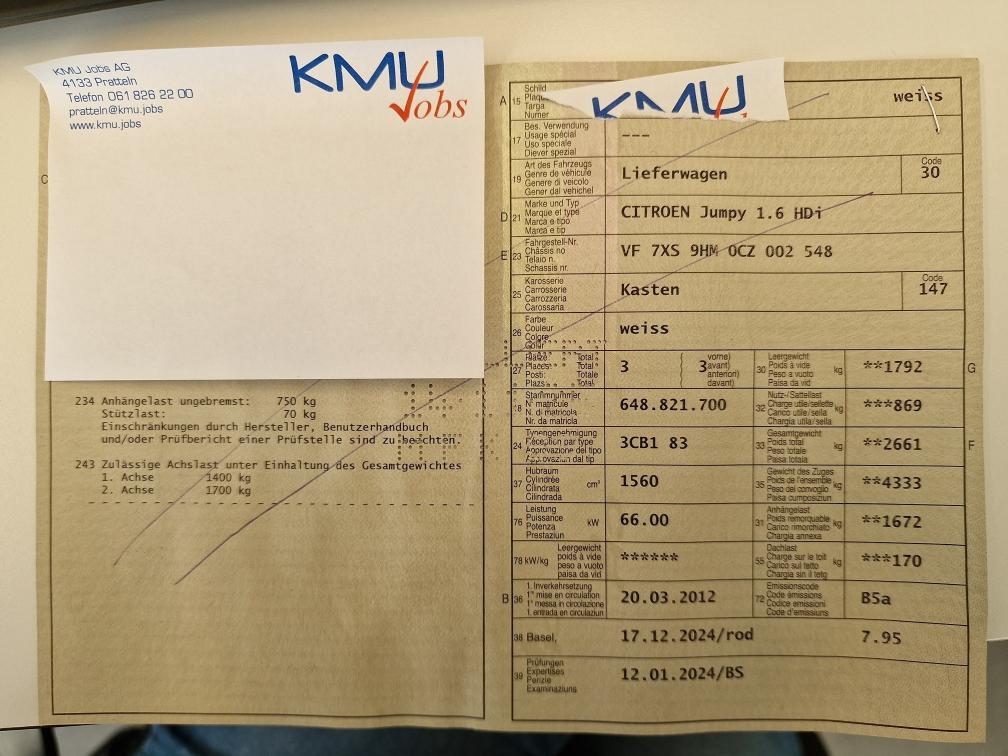 KMU Jobs AG
4133 Pratteln
Telefon 061 826 22 00
pratteln@kmu.jobs
www.kmu.jobs
KMU
Jobs
C
234 Anhängelast ungebremst: 750 kg
Stützlast: 70 kg
Einschränkungen durch Hersteller, Benutzerhandbuch
und/oder Prüfbericht einer Prüfstelle sind zu beachten.
243 Zulässige Achslast unter Einhaltung des Gesamtgewichtes
1. Achse 1400 kg
2. Achse 1700 kg
KMU
A 15 Schild
Targa
Numer
weiss
17 Bes. Verwendung
Usage spécial
Uso speciale
Diever spezial
---
19 Art des Fahrzeugs
Genre de véhicule
Genere di veicolo
Gener dal vehichel
Lieferwagen
Code
30
D 21 Marke und Typ
Marque et type
Marca e tipo
Marca e tip
CITROEN Jumpy 1.6 HDi
E 23 Fahrgestell-Nr.
Châssis no
Telaio n.
Schassis nr.
VF 7XS 9HM 0CZ 002 548
25 Karosserie
Carrosserie
Carrozzeria
Carossaria
Kasten
Code
147
26 Farbe
Couleur
Colore
Colur
weiss
27 Plätze: Total
Places: Total
Posti: Totale
Plazs: Total
3
3 vorne)
avant)
anteriori)
davant)
30 Leergewicht
Poids à vide
Peso a vuoto
Paisa da vid
kg
**1792
G
18 Stammnummer
N° matricule
N. di matricola
Nr. da matricla
648.821.700
32 Nutz-/Sattellast
Charge utile/sellette
Carico utile/sella
Chargia utila/sella
kg
***869
24 Typengenehmigung
Réception par type
Approvazione del tipo
Approvaziun dal tip
3CB1 83
33 Gesamtgewicht
Poids total
Peso totale
Paisa totala
kg
**2661
F
37 Hubraum
Cylindrée
Cilindrata
Cilindrada
cm³
1560
35 Gewicht des Zuges
Poids de l'ensemble
Peso del convoglio
Paisa cumposiziun
kg
**4333
76 Leistung
Puissance
Potenza
Prestaziun
kW
66.00
31 Anhängelast
Poids remorquable
Carico rimorchiato
Chargia annexa
kg
**1672
78 kW/kg
Leergewicht
poids à vide
peso a vuoto
paisa da vid
******
55 Dachlast
Charge sur le toit
Carico sul tetto
Chargia sin il tetg
kg
***170
B 36 1. Inverkehrsetzung
1re mise en circulation
1a messa in circolazione
1. entrada en circulaziun
20.03.2012
72 Emissionscode
Code émissions
Codice emissioni
Code d'emissiuns
B5a
38 Basel,
17.12.2024/rod
7.95
39 Prüfungen
Expertises
Perizie
Examinaziuns
12.01.2024/BS